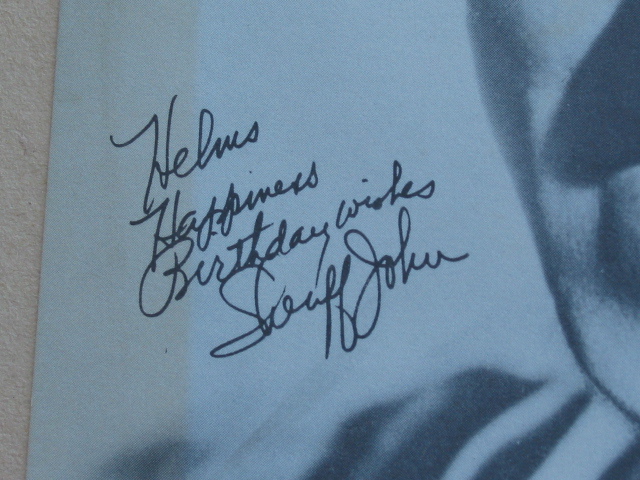 Helms
Happiness
Birthday wishes
Sheriff John